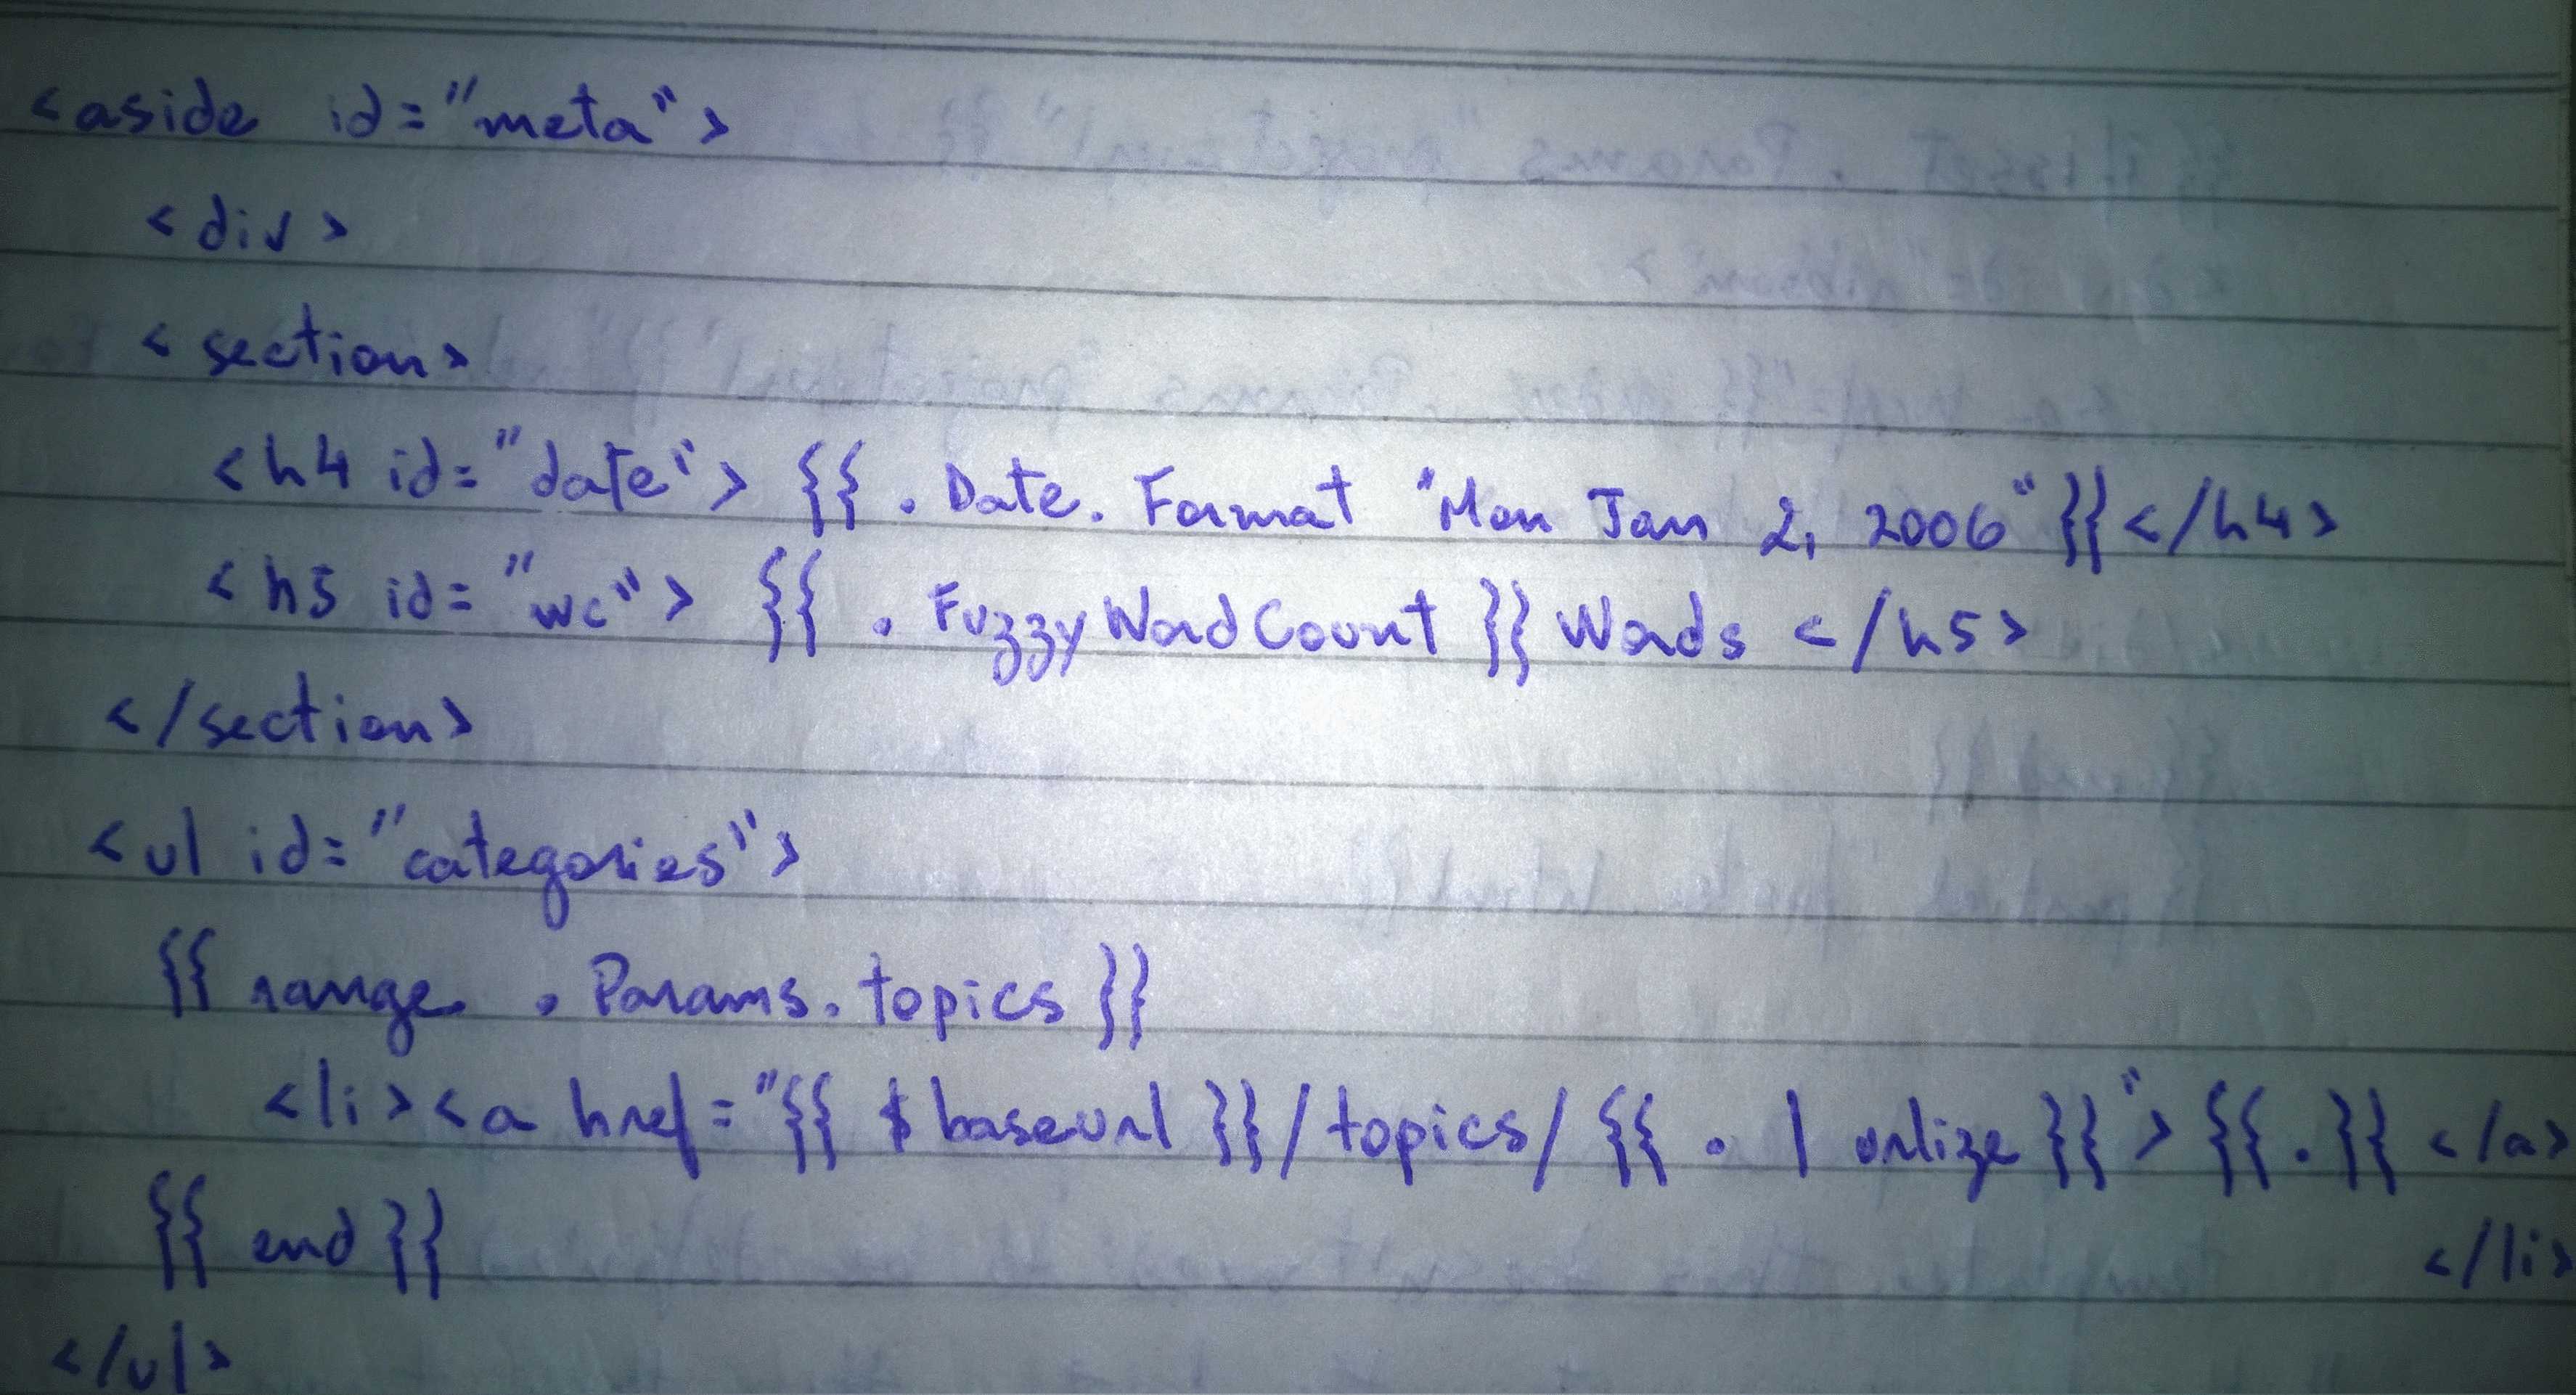 <aside id="meta">
<div>
<section>
<h4 id="date"> {{ .Date.Format "Mon Jan 2, 2006" }}</h4>
<h5 id="wc"> {{ .FuzzyWordCount }} Words </h5>
</section>
<ul id="categories">
{{ range .Params.topics }}
<li><a href="{{ $baseurl }}/topics/{{ . | urlize }}"> {{ . }} </a>
{{ end }} </li>
</ul>